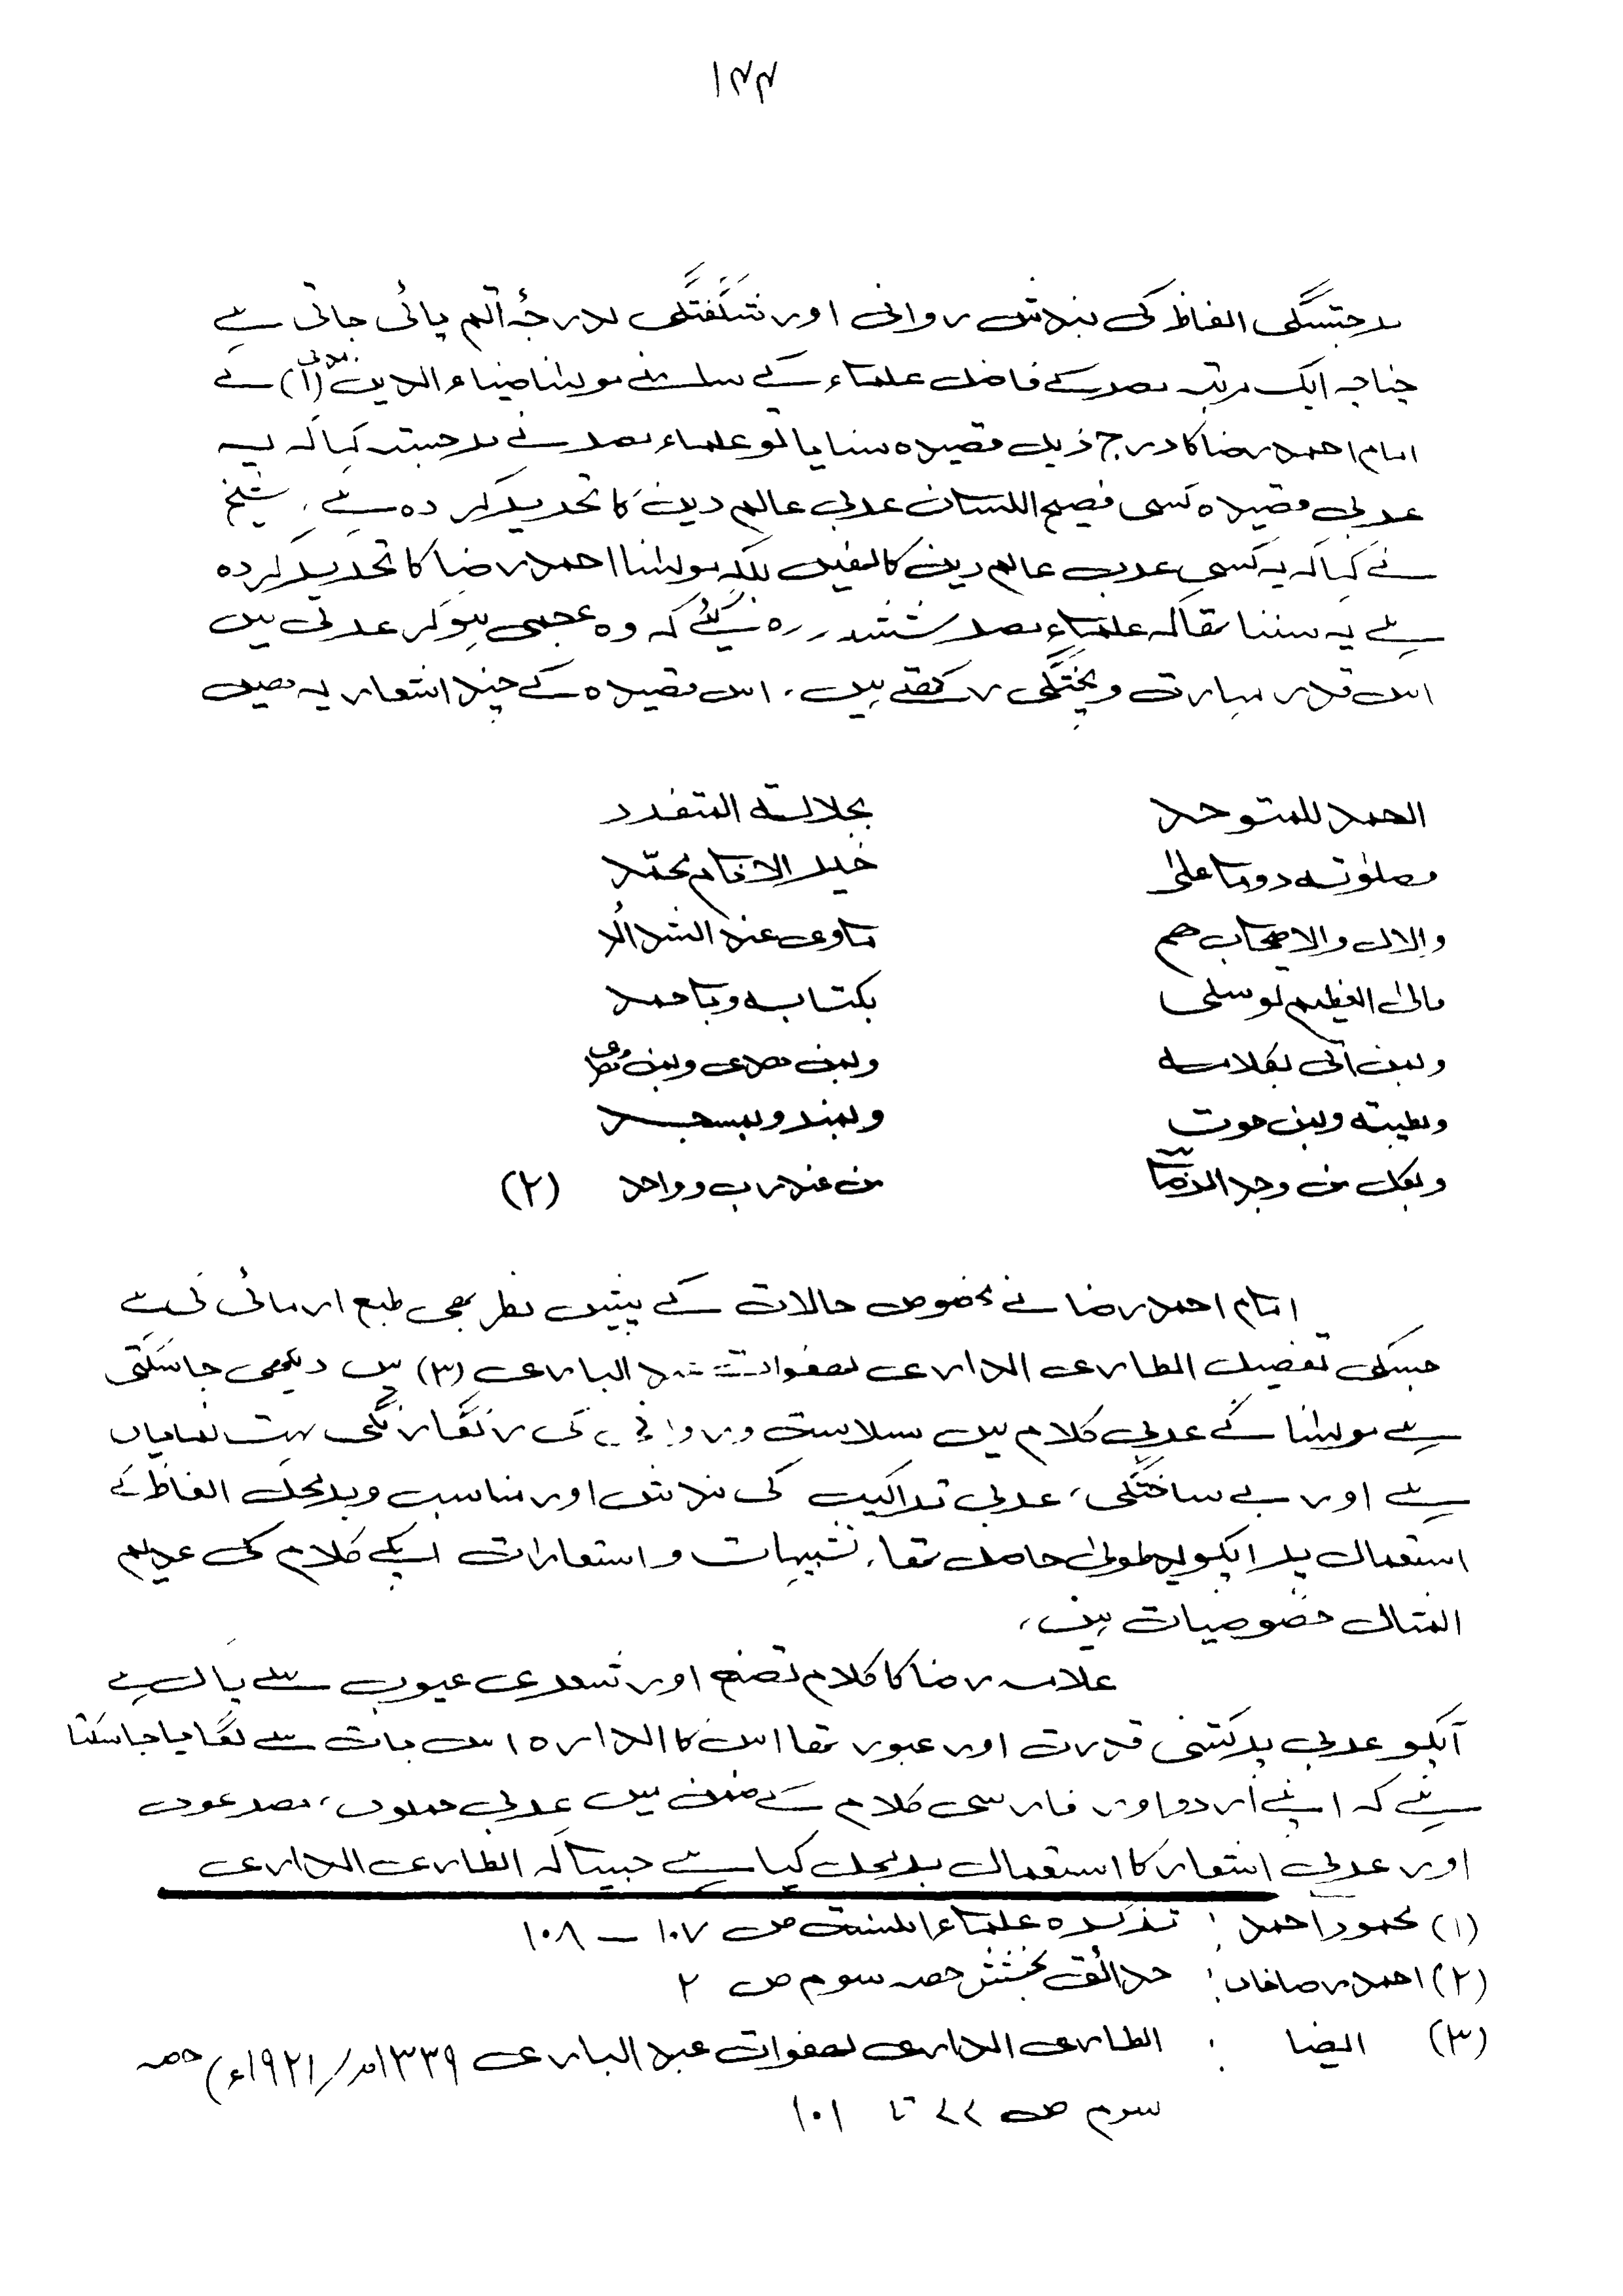 ۱۴۴
برجستگی الفاظ کی بندش روانی اور شگفتگی بدرجۂ اتم پائی جاتی ہے
چناچہ ایک مرتبہ مصر کے فاضل علماء کے سامنے مولٰنا ضیاء الدین مدنی (۱) نے
امام احمد رضا کا درج ذیل قصیدہ سنایا تو علماء مصر نے برجستہ کہا کہ یہ
عربی قصیدہ کسی فصیح اللسان عربی عالم دین کا تحریر کردہ ہے، شیخ
نے کہا کہ یہ کسی عرب عالم دین کا نہیں بلکہ مولٰنا احمد رضا کا تحریر کردہ
ہے یہ سننا تھا کہ علماء مصر ششدر رہ گئے کہ وہ عجمی ہوکر عربی میں
اس قدر مہارت و پختگی رکھتے ہیں، اس قصیدہ کے چند اشعار یہ ھیں
الحمد للمتوحد بجلالہ المتفرد
وصلوٰتہ دوما علیٰ خیر الانام محمّد
والال والاصحاب ھم ماوی عند الشدائد
فالیٰ العظیم توسلی بکتابہ وباحمد
وبمن اتی بکلامہ وبمن ھدی وبمن ھدی
وبطیبتہ وبمن حوت وبمنبر وبمسجد
وبکل من وجد الرضا من عند رب وواحد (۲)
امام احمد رضا نے مخصوص حالات کے پیش نظر بھی طبع ازمائی کی ہے
جسکی تفصیل الطاری الداری لھفوات عبد الباری (۳) میں دیکھی جاسکتی
ہے مولٰنا کے عربی کلام میں سلاست و روانی کی رنگارنگی بہت نمایاں
ہے اور بے ساختگی، عربی تراکیب کی بندش اور مناسب و برمحل الفاظ کے
استعمال پر اپکو ید طولیٰ حاصل تھا، تشبیہات و استعارات اپکے کلام کی عدیم
المثال خصوصیات ہیں،
علامہ رضا کا کلام تصنع اور شعری عیوب سے پاک ہے
آپکو عربی پر کتنی قدرت اور عبور تھا اس کا اندازہ اس بات سے لگایا جاسکتا
ہے کہ اپنے اردو اور فارسی کلام کے ضمن میں عربی جملوں، مصرعوں
اور عربی اشعار کا استعمال برمحل کیا ہے جیساکہ الطاری الداری
(۱) محمود احمد : تذکرہ علماء اہلسنت ص ۱۰۷ – ۱۰۸
(۲) احمد رضا خاں : حدائق بخشش حصہ سوم ص ۲
(۳) ایضا : الطاری الداری لھفوات عبد الباری ۱۳۳۹ھ/۱۹۲۱ء) حصہ
سوم ص ۷۷ تا ۱۰۱